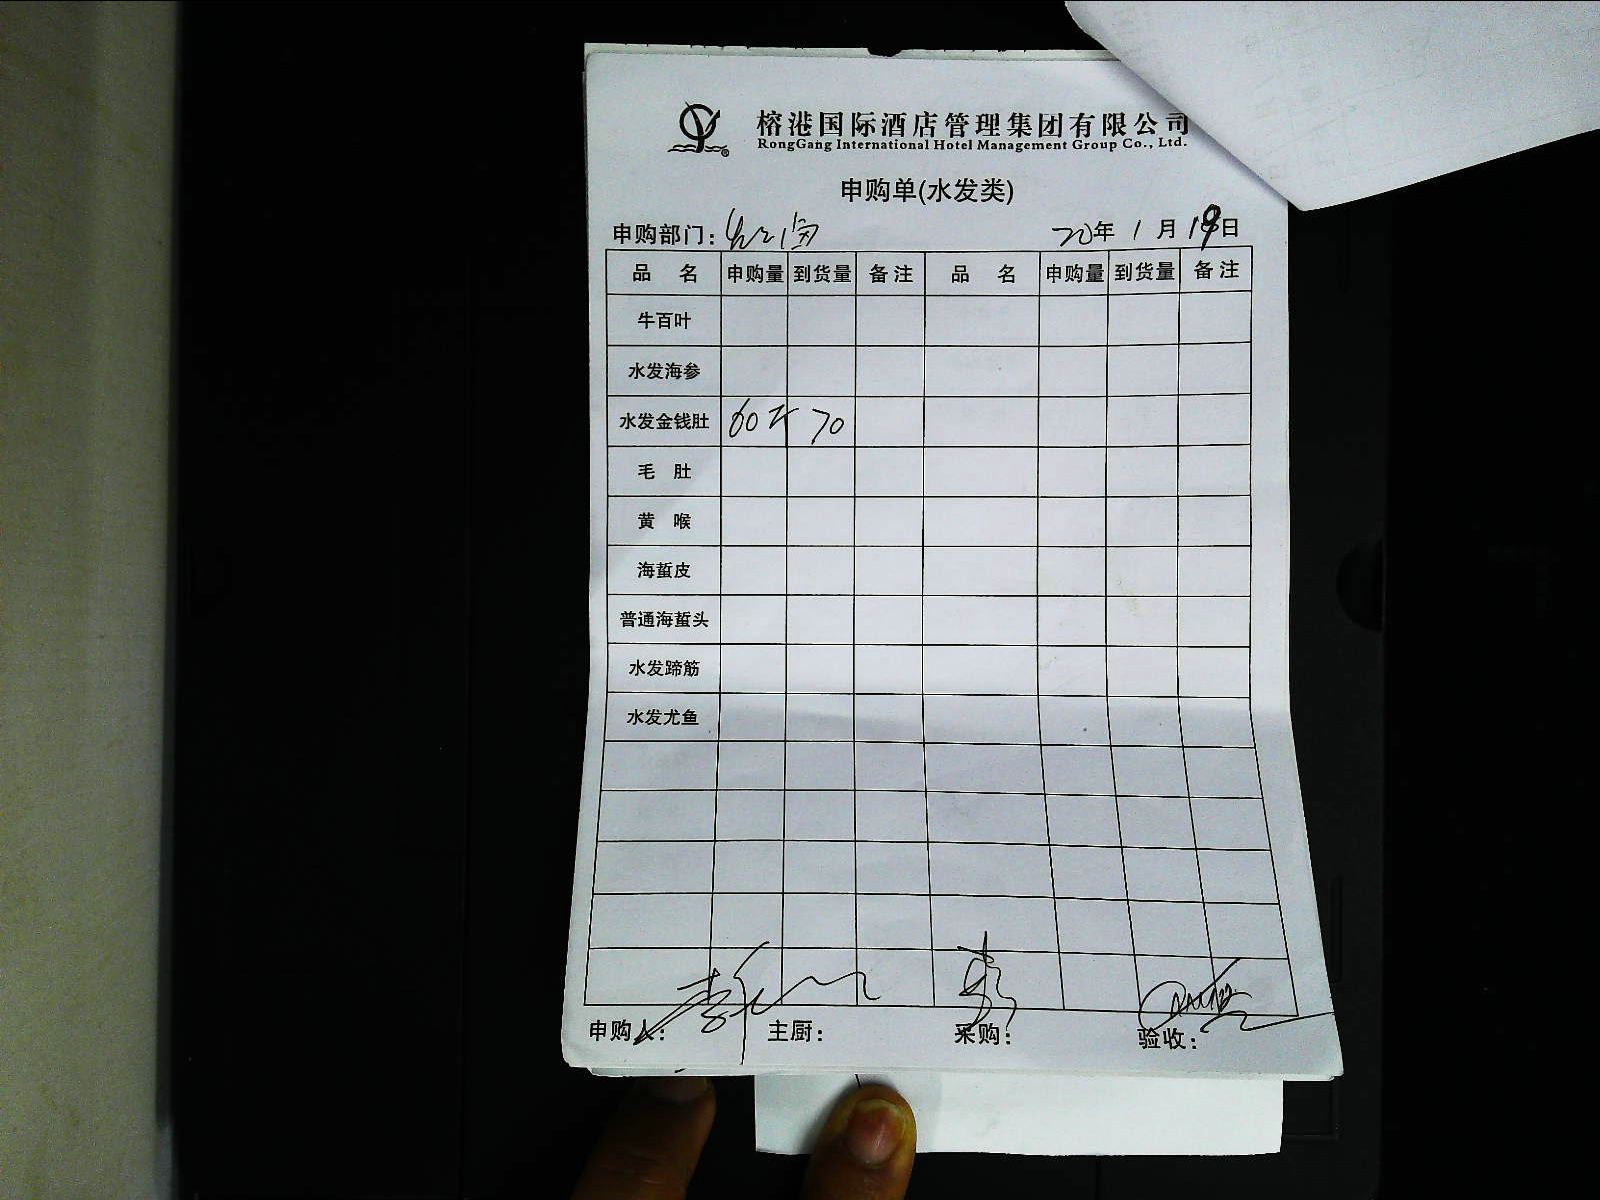 榕港国际酒店管理集团有限公司
RongGang International Hotel Management Group Co., Ltd.
申购单(水发类)
申购部门: 20年 1月 19日
品 名 申购量 到货量 备注 品 名 申购量 到货量 备注
牛百叶
水发海参
水发金钱肚 60斤 70
毛 肚
黄 喉
海蜇皮
普通海蜇头
水发蹄筋
水发尤鱼
申购人: 主厨: 采购: 验收: